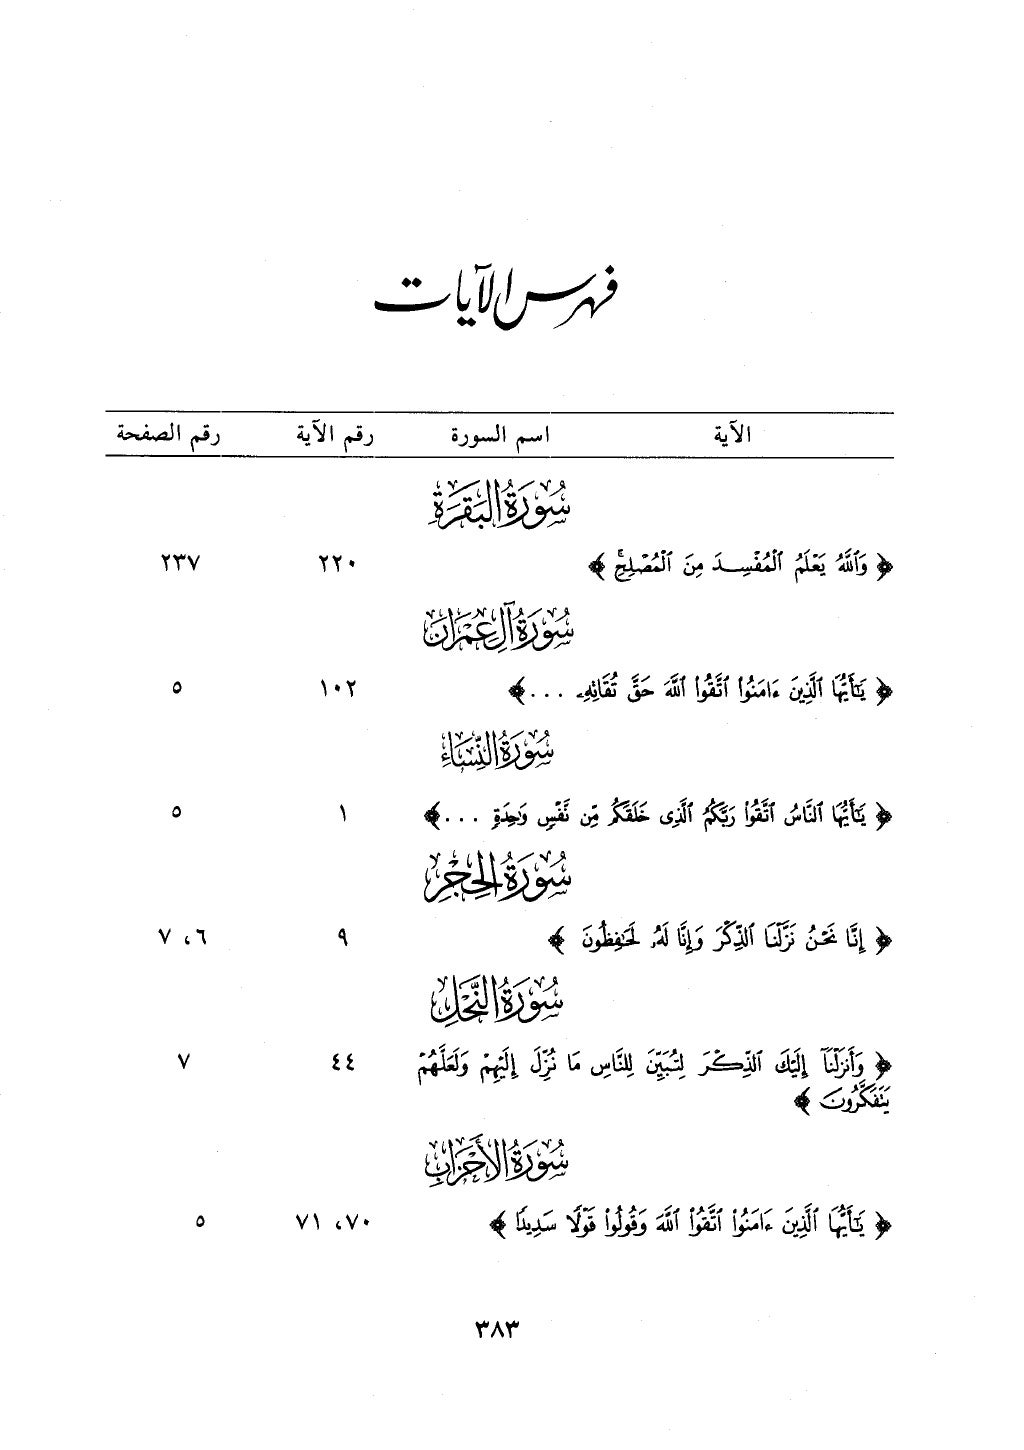 فهرس الآيات
الآية اسم السورة رقم الآية رقم الصفحة
سُورَةُ البَقَرَةِ
﴿ وَٱللَّهُ يَعْلَمُ ٱلْمُفْسِدَ مِنَ ٱلْمُصْلِحِ ۚ ﴾ ٢٢٠ ٢٣٧
سُورَةُ آلِ عِمْرَان
﴿ يَـٰٓأَيُّهَا ٱلَّذِينَ ءَامَنُوا۟ ٱتَّقُوا۟ ٱللَّهَ حَقَّ تُقَاتِهِۦ ... ﴾ ١٠٢ ٥
سُورَةُ النِّسَاءِ
﴿ يَـٰٓأَيُّهَا ٱلنَّاسُ ٱتَّقُوا۟ رَبَّكُمُ ٱلَّذِى خَلَقَكُم مِّن نَّفْسٍ وَٰحِدَةٍ ... ﴾ ١ ٥
سُورَةُ الحِجْرِ
﴿ إِنَّا نَحْنُ نَزَّلْنَا ٱلذِّكْرَ وَإِنَّا لَهُۥ لَحَـٰفِظُونَ ﴾ ٩ ٦، ٧
سُورَةُ النَّحْلِ
﴿ وَأَنزَلْنَآ إِلَيْكَ ٱلذِّكْرَ لِتُبَيِّنَ لِلنَّاسِ مَا نُزِّلَ إِلَيْهِمْ وَلَعَلَّهُمْ ٤٤ ٧
يَتَفَكَّرُونَ ﴾
سُورَةُ الأَحْزَابِ
﴿ يَـٰٓأَيُّهَا ٱلَّذِينَ ءَامَنُوا۟ ٱتَّقُوا۟ ٱللَّهَ وَقُولُوا۟ قَوْلًا سَدِيدًا ﴾ ٧٠، ٧١ ٥
٣٨٣